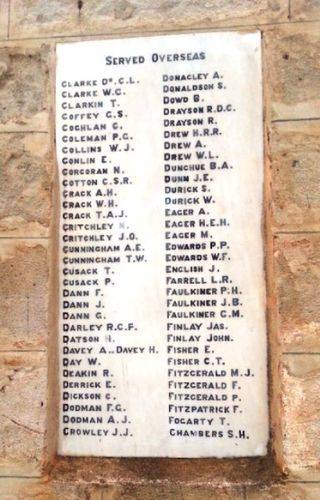 SERVED OVERSEAS
CLARKE DR. C.L.
CLARKE W.C.
CLARKIN T.
COFFEY G.S.
COGHLAN G.
COLEMAN P.G.
COLLINS W.J.
CONLIN E.
CORCORAN N.
COTTON C.S.R.
CRACK A.H.
CRACK W.H.
CRACK T.A.J.
CRITCHLEY
CRITCHLEY J.O.
CUNNINGHAM A.E.
CUNNINGHAM T.W.
CUSACK T.
CUSACK P.
DANN F.
DANN J.
DANN G.
DARLEY R.C.F.
DATSON H.
DAVEY A.. DAVEY H.
DAY W.
DEAKIN R.
DERRICK E.
DICKSON C.
DODMAN F.G.
DODMAN A.J.
CROWLEY J.J.
DONAGLEY A.
DONALDSON S.
DOWD B.
DRAYSON R.D.C.
DRAYSON R.
DREW H.R.R.
DREW A.
DREW W.L.
DUNCHUE B.A.
DUNN J.E.
DURICK S.
DURICK W.
EAGER A.
EAGER H.E.H.
EAGER M.
EDWARDS P.P.
EDWARDS W.F.
ENGLISH J.
FARRELL L.R.
FAULKINER P.H.
FAULKINER J.B.
FAULKINER C.M.
FINLAY JAS.
FINLAY JOHN.
FISHER E.
FISHER C.T.
FITZGERALD M.J.
FITZGERALD F.
FITZGERALD P.
FITZPATRICK F.
FOGARTY T.
CHAMBERS S.H.